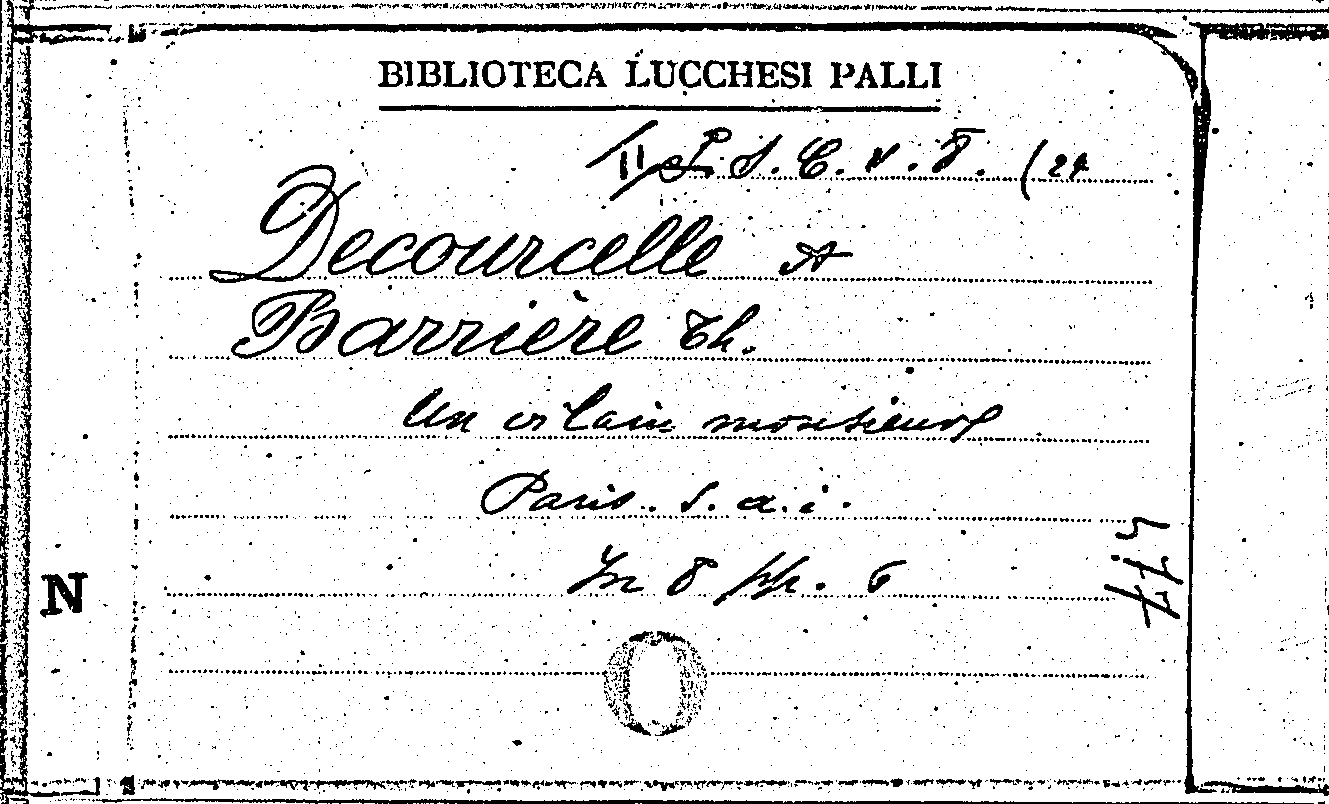 BIBLIOTECA LUCCHESI PALLI
S. C. V. 8. (24
Decourcelle A
Barrière Th.
Un vilain monsieur
Paris. s. a. i.
In 8 pp. 6
N